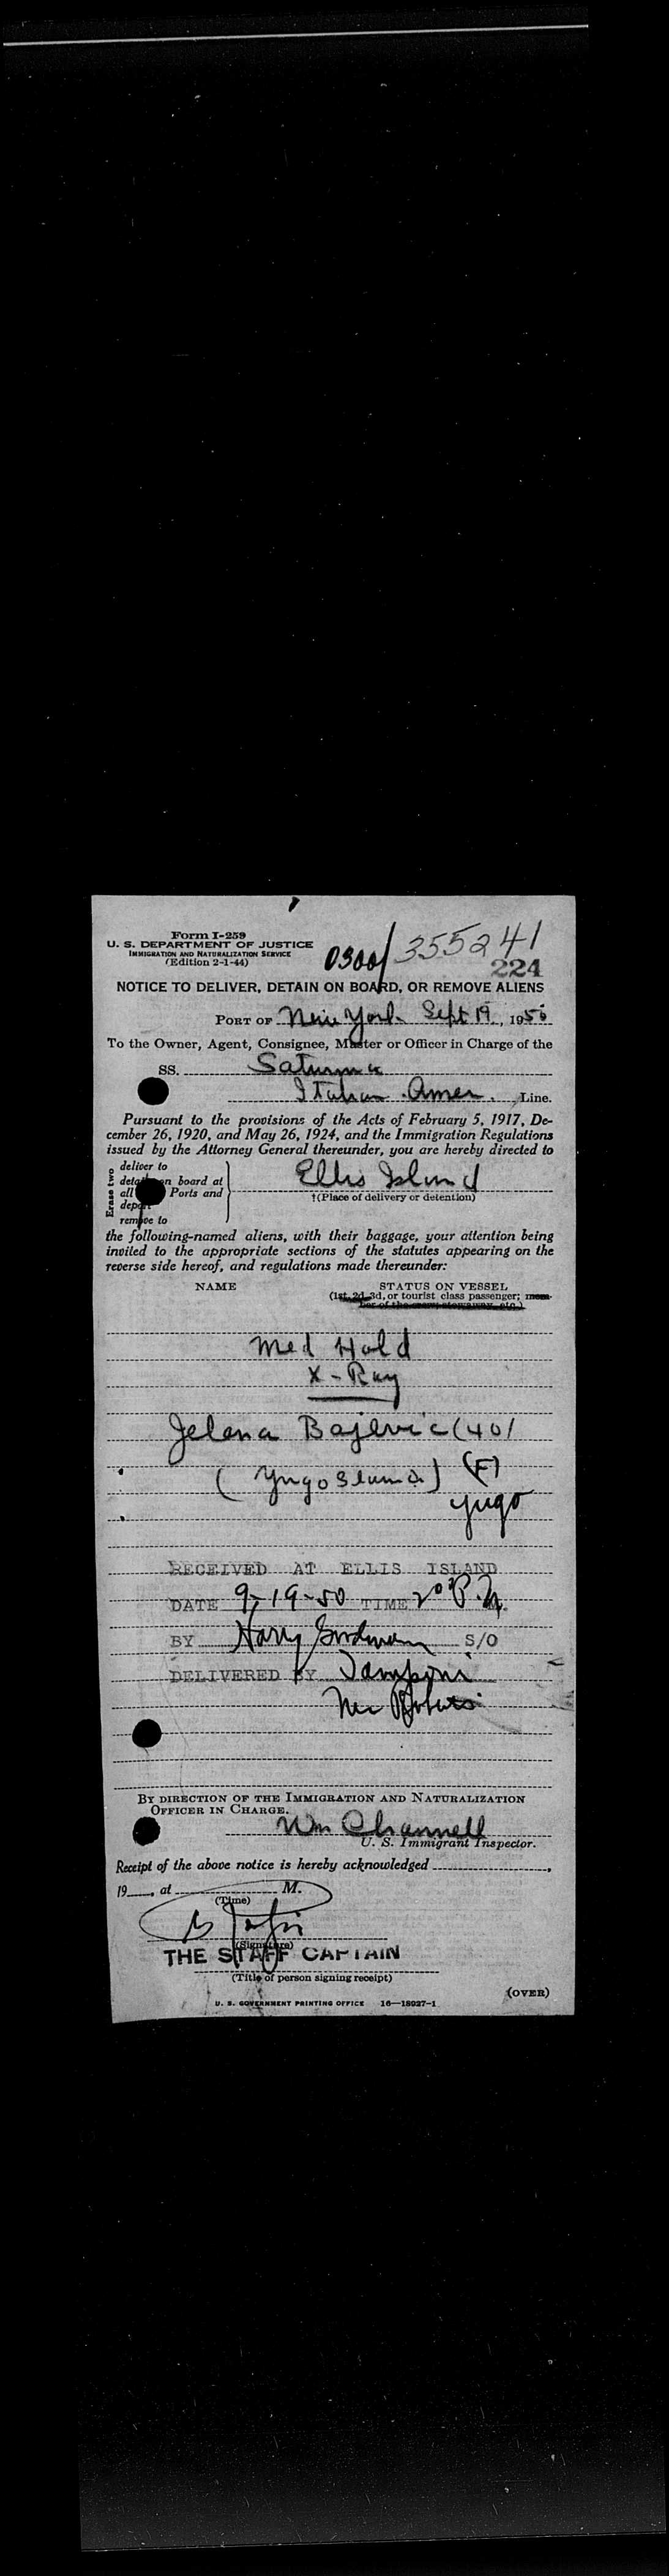 Form I-259
U. S. DEPARTMENT OF JUSTICE
IMMIGRATION AND NATURALIZATION SERVICE
(Edition 2-1-44)
0300/355241
224
NOTICE TO DELIVER, DETAIN ON BOARD, OR REMOVE ALIENS
PORT OF New York Sept 19, 1950
To the Owner, Agent, Consignee, Master or Officer in Charge of the
SS. Saturnia
Italian Amer. Line.
Pursuant to the provisions of the Acts of February 5, 1917, De-
cember 26, 1920, and May 26, 1924, and the Immigration Regulations
issued by the Attorney General thereunder, you are hereby directed to
Erase two
deliver to
detain on board at
all Ports and
deport
remove to
Ellis Island
†(Place of delivery or detention)
the following-named aliens, with their baggage, your attention being
invited to the appropriate sections of the statutes appearing on the
reverse side hereof, and regulations made thereunder:
NAME STATUS ON VESSEL
(1st, 2d, 3d, or tourist class passenger; mem-
ber of the crew, stowaway, etc.)
Med Hold
X-Ray
Jelena Bajevic (40)
(Yugoslavia) (F)
Yugo
RECEIVED AT ELLIS ISLAND
DATE 9-19-50 TIME P.M.
BY Harry Goodman S/O
DELIVERED BY Tamponi
BY DIRECTION OF THE IMMIGRATION AND NATURALIZATION
OFFICER IN CHARGE.
Wm Channell
U. S. Immigrant Inspector.
Receipt of the above notice is hereby acknowledged
19___, at M.
(Time)
(Signature)
THE STAFF CAPTAIN
(Title of person signing receipt)
(OVER)
U. S. GOVERNMENT PRINTING OFFICE 16—18027-1